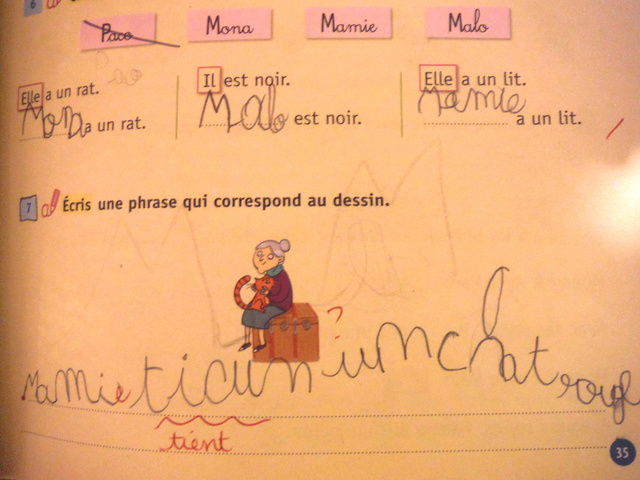 6
Paco Mona Mamie Malo
Elle a un rat. Il est noir. Elle a un lit.
Mona a un rat. Malo est noir. Mamie a un lit.
7 Écris une phrase qui correspond au dessin.
?
Mamie un chat
tient
35